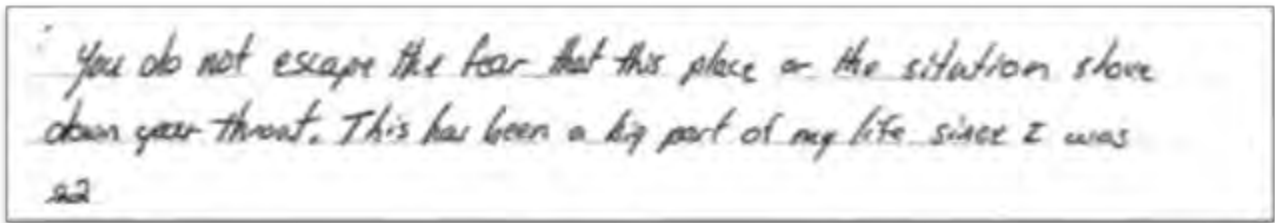 You do not escape the fear that this place or the sitation shove
down your throat. This has been a big part of my life since I was
22